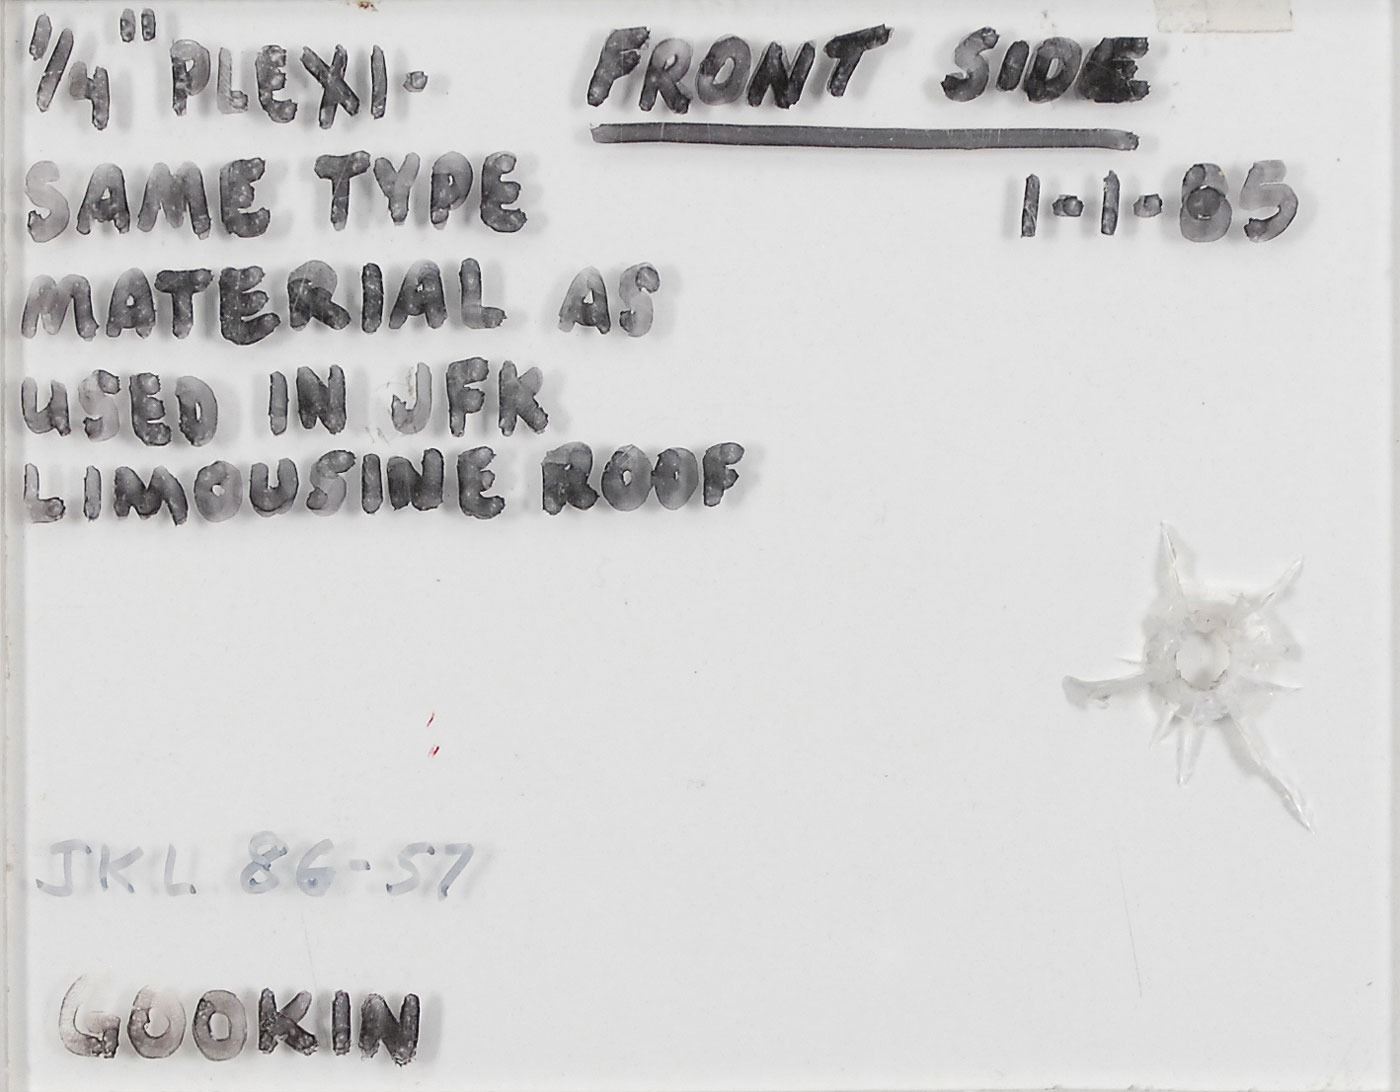 1/4" PLEXI.
FRONT SIDE
1.1.85
SAME TYPE
MATERIAL AS
USED IN JFK
LIMOUSINE ROOF
JKL 86-57
GOOKIN